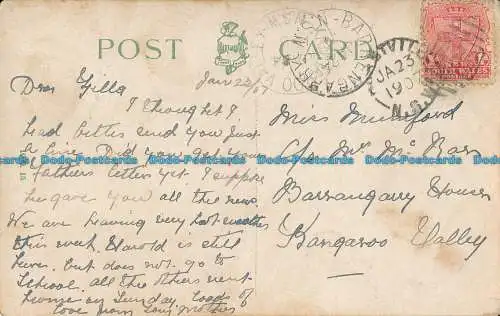 POST CARD
Jan 22/07
Dear Zilla
I thought I
had better send you just
a line. Did you get your
Fathers letter yet. I suppose
he gave you all the news.
We are having very hot weather
this week. Harold is still
here. but does not go to
School. all the others went
home on Sunday. Loads of
love from Your Mother
Miss Mumford
C/o Mrs Mc
Barrangarry House
Kangaroo Valley
JA 23
190
N.S.W
WALES
Dodo-Postcards Dodo-Postcards Dodo-Postcards Dodo-Postcards
Dodo-Postcards Dodo-Postcards Dodo-Postcards Dodo-Postcards